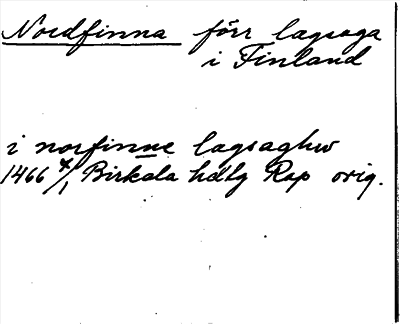 Nordfinna förr lagsaga
i Finland
i norfinne lagsaghw
1466 4/1 Birkala hdlg Rap orig.